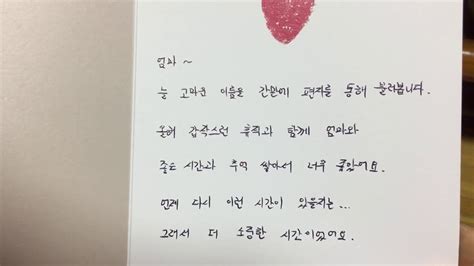 엄마 ~
늘 고마운 이름을 간만에 편지를 통해 불러봅니다.
올해 갑작스런 휴직과 함께 엄마와
좋은 시간과 추억 쌓아서 너무 좋았어요.
언제 다시 이런 시간이 있을지는...
그래서 더 소중한 시간이었어요.